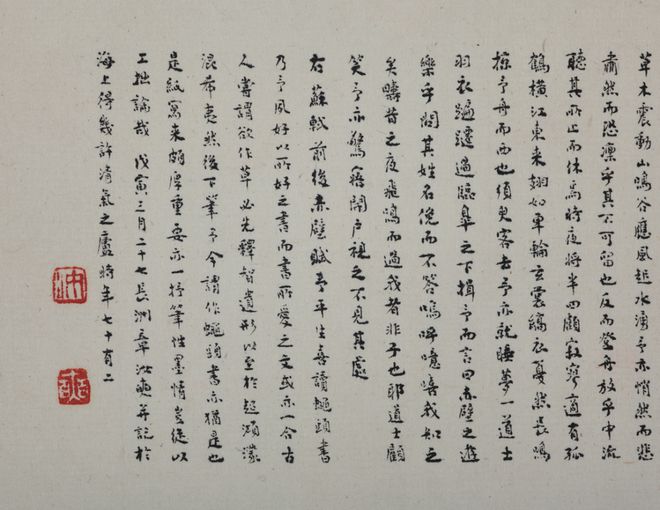 草木震動山鳴谷應風起水湧予亦悄然而悲
肅然而恐凜乎其不可留也反而登舟放乎中流
聽其所止而休焉時夜將半四顧寂寥適有孤
鶴橫江東來翅如車輪玄裳縞衣戛然長鳴
掠予舟而西也須臾客去予亦就睡夢一道士
羽衣蹁躚過臨皋之下揖予而言曰赤壁之遊
樂乎問其姓名俛而不答嗚呼噫嘻我知之
矣疇昔之夜飛鳴而過我者非子也耶道士顧
笑予亦驚寤開戶視之不見其處
右蘇軾前後赤壁賦予平生喜讀蠅頭書
乃予夙好以所好之書而書所愛之文或亦一合古
人嘗謂欲作草必先釋智遺形以至於超鴻濛
混希夷然後下筆予今謂作蠅頭書亦猶是也
是紙寫來頗厚重要亦一控筆性墨情豈從以
工拙論哉 戊寅三月二十七長洲章汝奭並記於
海上得幾許清氣之廬時年七十有二